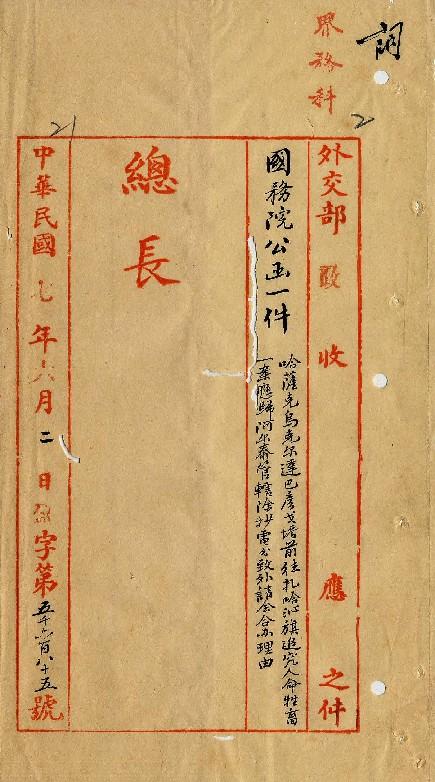 界務科
2
外交部 收 應 之件
國務院公函一件
哈薩克烏克尔達巴彦戈塔前往扎哈沁旗追究人命牲畜
一案應歸阿尔泰管轄除抄電分致外請会合办理由
總長
21
中華民國七年六月二日 字第五千六百八十五號